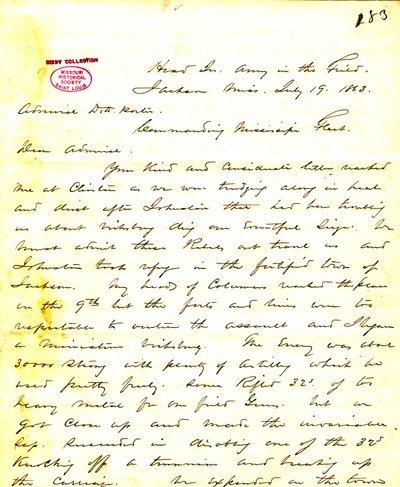 183
BIXBY COLLECTION
MISSOURI
HISTORICAL
SOCIETY
SAINT LOUIS
Head Qrs. Army in the Field.
Jackson Miss. July 19. 1863.
Admiral D. D. Porter.
Commanding Mississippi Fleet.
Dear Admiral.
Your Kind and Considerate letter reached
me at Clinton as we were trudging along in heat
and dust after Johnston that had been troubling
us about Vicksburg during our eventful Siege. We
must admit these Rebels out travel us and
Johnston took refuge in the fortified town of
Jackson. My heads of Columns reached the place
on the 9th but the forts and lines were too
respectable to venture the assault and I began
a miniature Vicksburg. The Enemy was about
30000 strong with plenty of Artillery which he
used pretty freely. Some Rifled 32s. of too
heavy metal for our field Guns. but we
got close up and made the invariable
Sap. Succeeded in disabling one of the 32s
Knocking off a trunnion and breaking up
the Carriage. We expended on the town